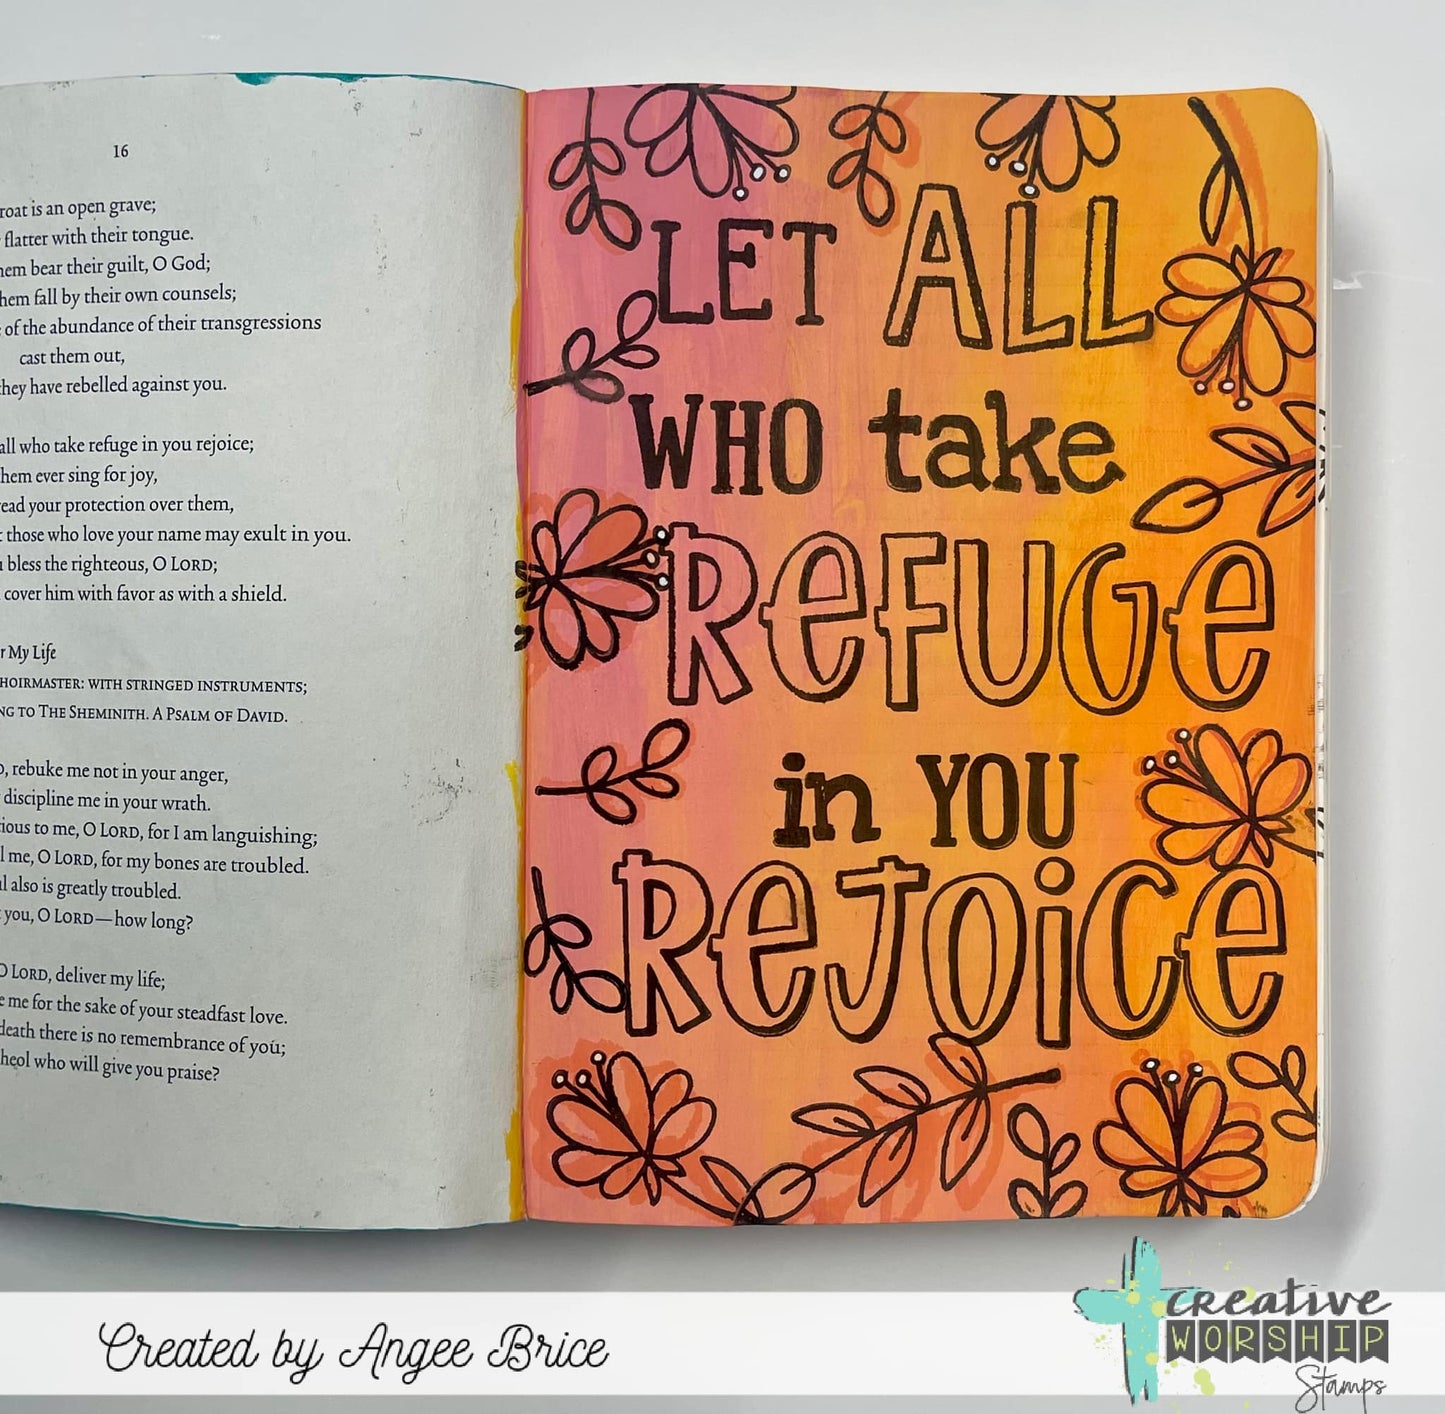 16
roat is an open grave;
flatter with their tongue.
hem bear their guilt, O God;
hem fall by their own counsels;
of the abundance of their transgressions
cast them out,
they have rebelled against you.
all who take refuge in you rejoice;
hem ever sing for joy,
read your protection over them,
those who love your name may exult in you.
bless the righteous, O LORD;
cover him with favor as with a shield.
r My Life
HOIRMASTER: WITH STRINGED INSTRUMENTS;
NG TO THE SHEMINITH. A PSALM OF DAVID.
, rebuke me not in your anger,
discipline me in your wrath.
ious to me, O LORD, for I am languishing;
l me, O LORD, for my bones are troubled.
ul also is greatly troubled.
you, O LORD—how long?
O LORD, deliver my life;
e me for the sake of your steadfast love.
death there is no remembrance of you;
heol who will give you praise?
LET ALL
WHO take
REFUGE
in YOU
REJOICE
Created by Angee Brice
creative
WORSHIP
Stamps